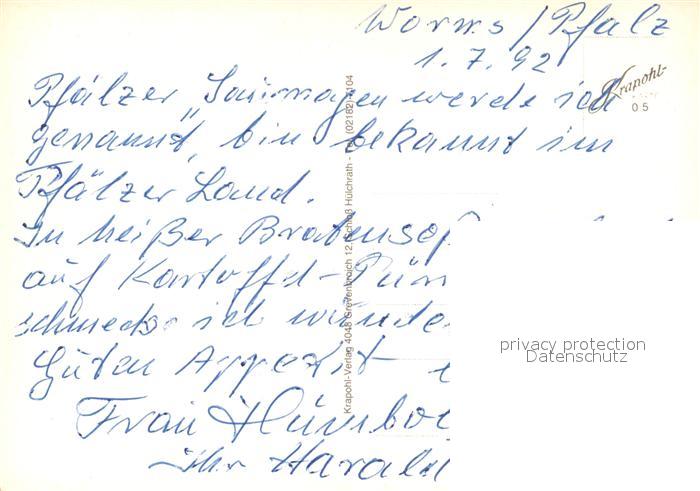 Worms / Pfalz
1. 7. 92
Pfälzer „Saumagen werde ich
genannt, bin bekannt im
Pfälzer Land.
In heißer Bratensoß
auf Kartoffel-Pür
schmecke ich wunde
Guten Appetit
Frau Humbol
Ihr Harald
Krapohl-Verlag 4048 Grevenbroich 12, Schloß Hülchrath (02182)
Krapohl-
0.5
privacy protection
Datenschutz